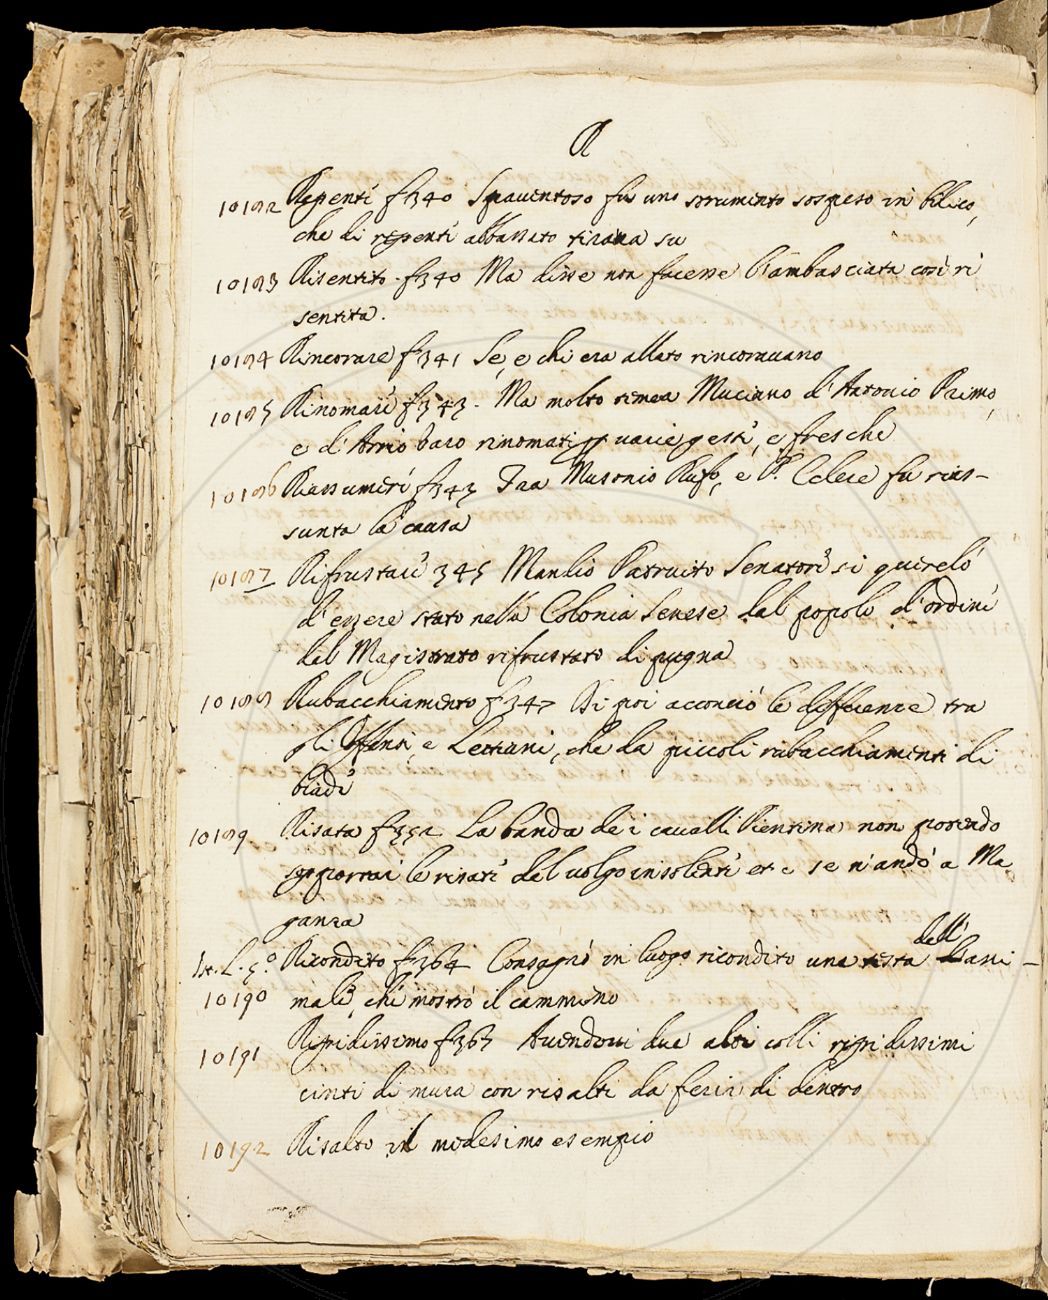 R
10182 Repente f 340 Spaventoso fu uno strumento sospeso in bilico,
che di repente abbassato tirava su
10183 Risentito f 340 Ma disse non facesse l'ambasciata così ri
sentita.
10184 Rincorare f 341 Se, e chi era allato rincoravano
10185 Rinomare f 343. Ma molto temea Muciano d'Antonio Primo,
e d'Arrio Varo rinomati p varie gesti, e fresche
10186 Riassumere f 343 Tra Musonio Rufo, e P. Celere fu rias-
sunta la causa
10187 Rifrustare 345 Manlio Patruito Senatore si querelò
d'essere stato nella Colonia Senese dal popolo d'ordine
del Magistrato rifrustato di pugna
10188 Rubacchiamento f 347 Di poi acconciò le differenze tra
gli Offensi, e Lettani, che da piccoli rubacchiamenti di
biade
10189 Risata f 352 La banda de i cavalli Pientina non potendo
sopportare le risate del volgo insolente et c se n'andò a Ma
ganza
St. L. 5.º Ricondito f 364 Consagrò in luogo ricondito una testa dell'
ani-
10190 male, che mostrò il cammino
10191 Ripidissimo f 365 Avendovi due alti colli ripidissimi
cinti di mura con risalti da ferir di dentro
10192 Risalto il medesimo esempio